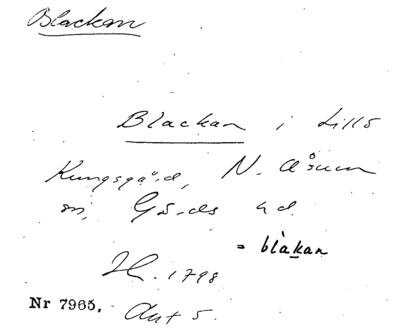 Blackan
Blackan i Lillö
Kungsgård, N. Åsum
sn, Gärds hd.
= blàkan
H. 1798
Nr 7965. Akt 5.